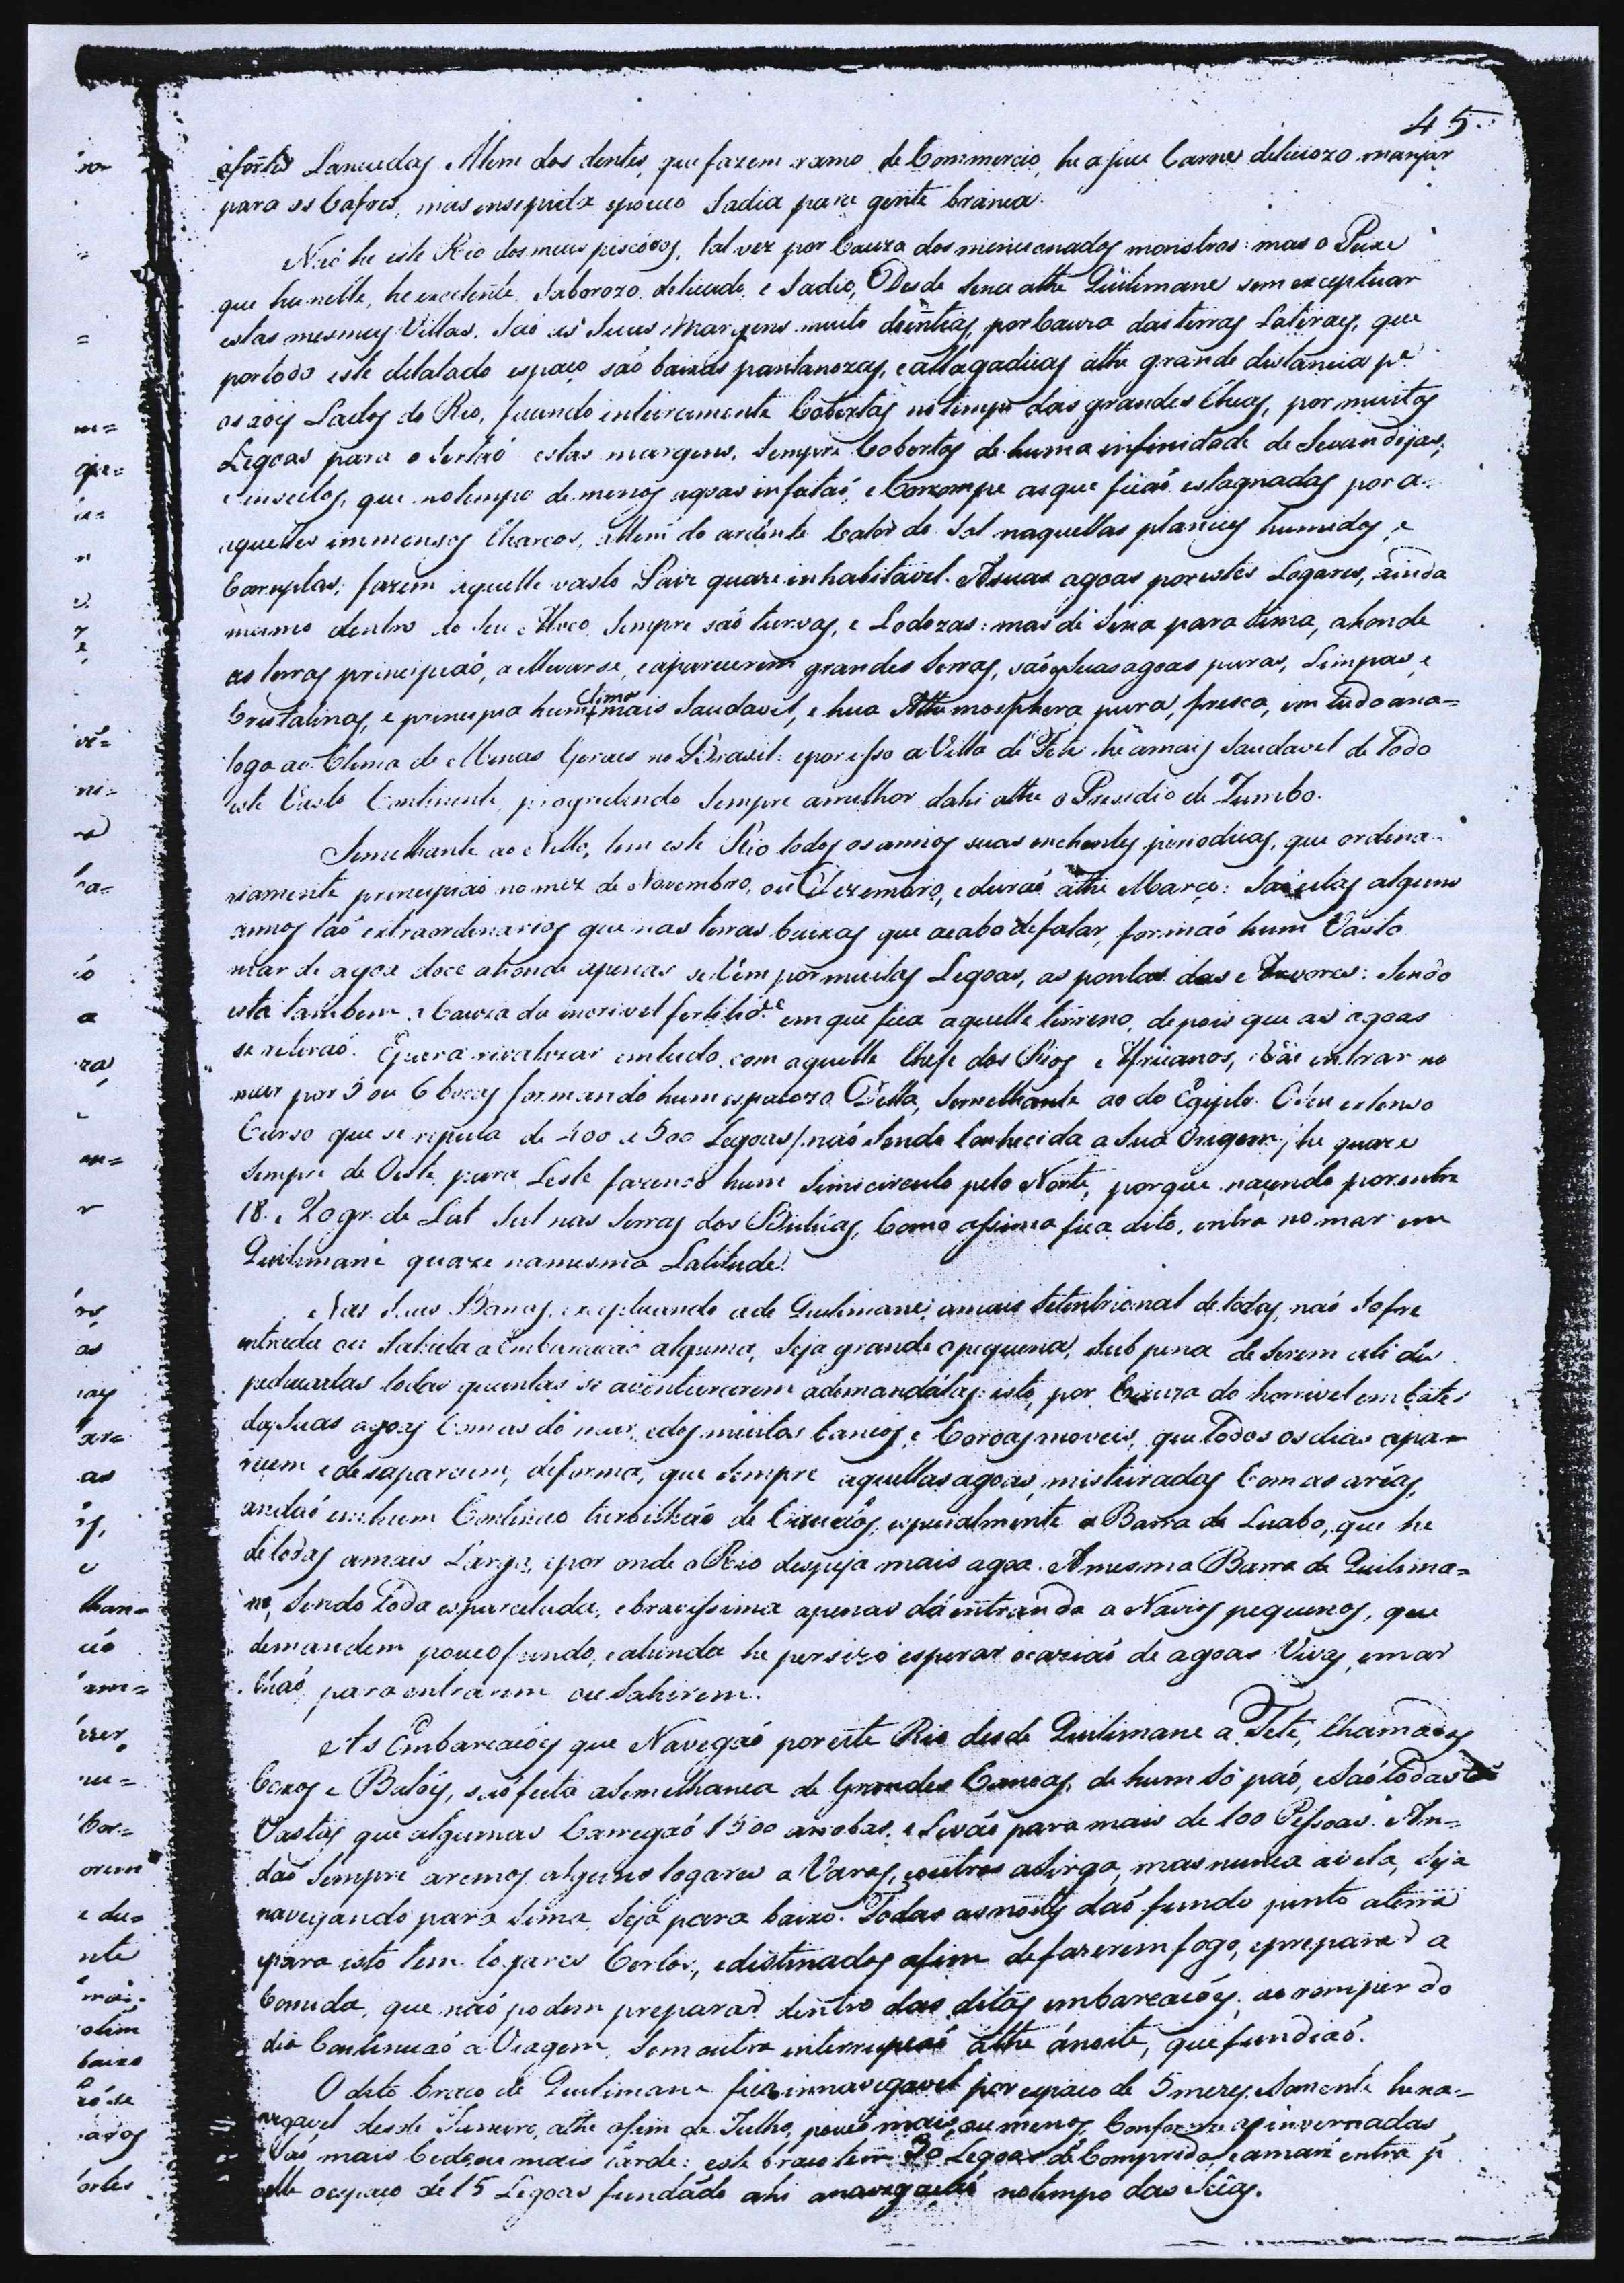 45.
afortes Lancadas Alem dos dentes, que fazem ramo de Commercio, he a sua Carne deliciozo manjar
para os Cafres, mas insepida e pouco Sadia para gente branca.
Naõ he este Rio dos mais piscózos, tal vez por Cauza dos mencionados monstros: mas o Peixe
que ha nelle, he excelente, Saborozo, delicado, e Sadio, Desde Sena athe Quilimane sem exceptuar
estas mesmas Villas, Saõ as Suas Margens muito doêntias, por Cauza das terras Lateraes, que
por todo este delatado espaço saõ baixas pantanozas, e allagadicas athe grande distancia p.ª
os dois Lados do Rio, ficando inteiramente Cobertas no tempo das grandes Cheas, por muitas
Legoas para o Sertaõ estas margens, Sempre Cobertas de huma infinidade de Sevandijas,
e insectos, que no tempo de menos agoas infestaõ, e Corrompe as que ficaõ estagnadas por a-
aquelles immensos Charcos, allem do ardente Calor do Sol naquellas planicies humidas, e
Corruptas, fazem aquelle vasto Paiz quaze inhabitavel. As suas agoas por estes Logares, ainda
mesmo dentro do Seu Alveo, Sempre saõ turvas, e Lodozas: mas de Sena para Sima, ahonde
as terras principiaõ, a ellevarse, e aparecerem grandes Serras, saõ as Suas agoas puras, Limpas, e
Cristalinas, e principia hum Clima mais Saudavel, e hua Athmosphera pura, fresca, em tudo ana=
loga ao Clima de Minas Geraes no Brasil: e por isso a Villa de Tete he a mais Saudavel de todo
este Vasto Continente, progredindo Sempre amelhor dahi athe o Presidio de Zumbo.
Semelhante ao Nillo, tem este Rio todos os annos suas enchentes periodicas, que ordina-
riamente principiaõ no mez de Novembro, ou Dezembro, e duraõ athe Março: Saõ estas alguns
annos taõ extraordenarias que nas terras baixas que acabo de falar, formaõ hum Vasto
mar de agoa doce ahonde apenas se vêm por muitas Legoas, as pontas das Arvores: Sendo
esta tambem a Cauza da incrivel fertilid.e em que fica aquelle terreno, depois que as agoas
se retiraõ. E para rivalizar em tudo com aquelle Chefe dos Rios Africanos, vai entrar no
mar por 5 ou 6 bocas formando hum espaçozo Delta, Semelhante ao do Egipto. O Seu extenso
Curso que se reputa de 400 a 500 Legoas/naõ sendo Conhecida a Sua Origem/he quaze
Sempre de Oeste para Leste fazendo hum Semicirculo pelo Norte, porque nacendo por entre
18. e 20 gr. de Lat Sul nas Serras dos Butúas, Como assima fica dito, entra no mar em
Quilimane quaze na mesma Latitude.
Nas Suas Barras, exceptuando a de Quilimane, a mais Setentrional de todas, naõ Sofre
entrada ou Sahida a Embarcacaõ alguma, Seja grande o pequena, Sub pena de Serem ali des
pedacadas todas quantas se aventurarem a demandálas: isto, por Cauza do horrivel embate
das Suas agoas Com as do mar, e dos muitos bancos, e Coroas moveis, que todos os dias apa-
recem e desaparecem, de forma, que Sempre aquellas agoas, misturadas Com as arêas,
andaõ em hum Continuo turbilhaõ de especialmente a Barra de Luabo, que he
de todas a mais Larga, e por onde o Rio despeja mais agoa. A mesma Barra de Quilima=
ne, Sendo toda esparcelada, e bravissima apenas dá entranda a Navios pequenos, que
demandem pouco fundo, e ahinda he persizo esperar ocaziaõ de agoas Vivas, e mar
Chaõ, para entrarem ou Sahirem.
As Embarcacóes que Navegaõ por este Rio desde Quilimane a Tete, Chamadas
Coxos e Balões, saõ feita a Semelhanca de Grandes Canoas, de hum só paõ, e Saõ todas taõ
Vastas que algumas Carregaõ 1500 arrobas, e Levaõ para mais de 100 Pessoas. An=
daõ Sempre a remos alguns logares a Varas, e outros a Sirga, mas nunca a vela, Seja
navegando para Sima, Seja para baixo. Todas as noites daõ fundo junto a terra
e para isto tem logares Certos, e distinados afim de fazerem fogo, e preparar a
Comida, que naõ podem preparar dentro das ditas embarcacóes: ao romper do
dia Continuaõ a Viagem, Sem outra interrupcaõ athe ánoite, que fundiaõ.
O dito braco de Quilimane fica innavegavel por espaco de 5 mezes, Somente he na-
vegavel desde Janeiro, athe o fim de Julho, pouco mais, ou menos, Conforme as invernadas
Saõ mais Cedo, ou mais tarde: este braco tem 30 Legoas de Comprido, e a maré entra p.
elle o espaco de 15 Legoas fundádo ahi a navegacaõ no tempo das Sêcas.